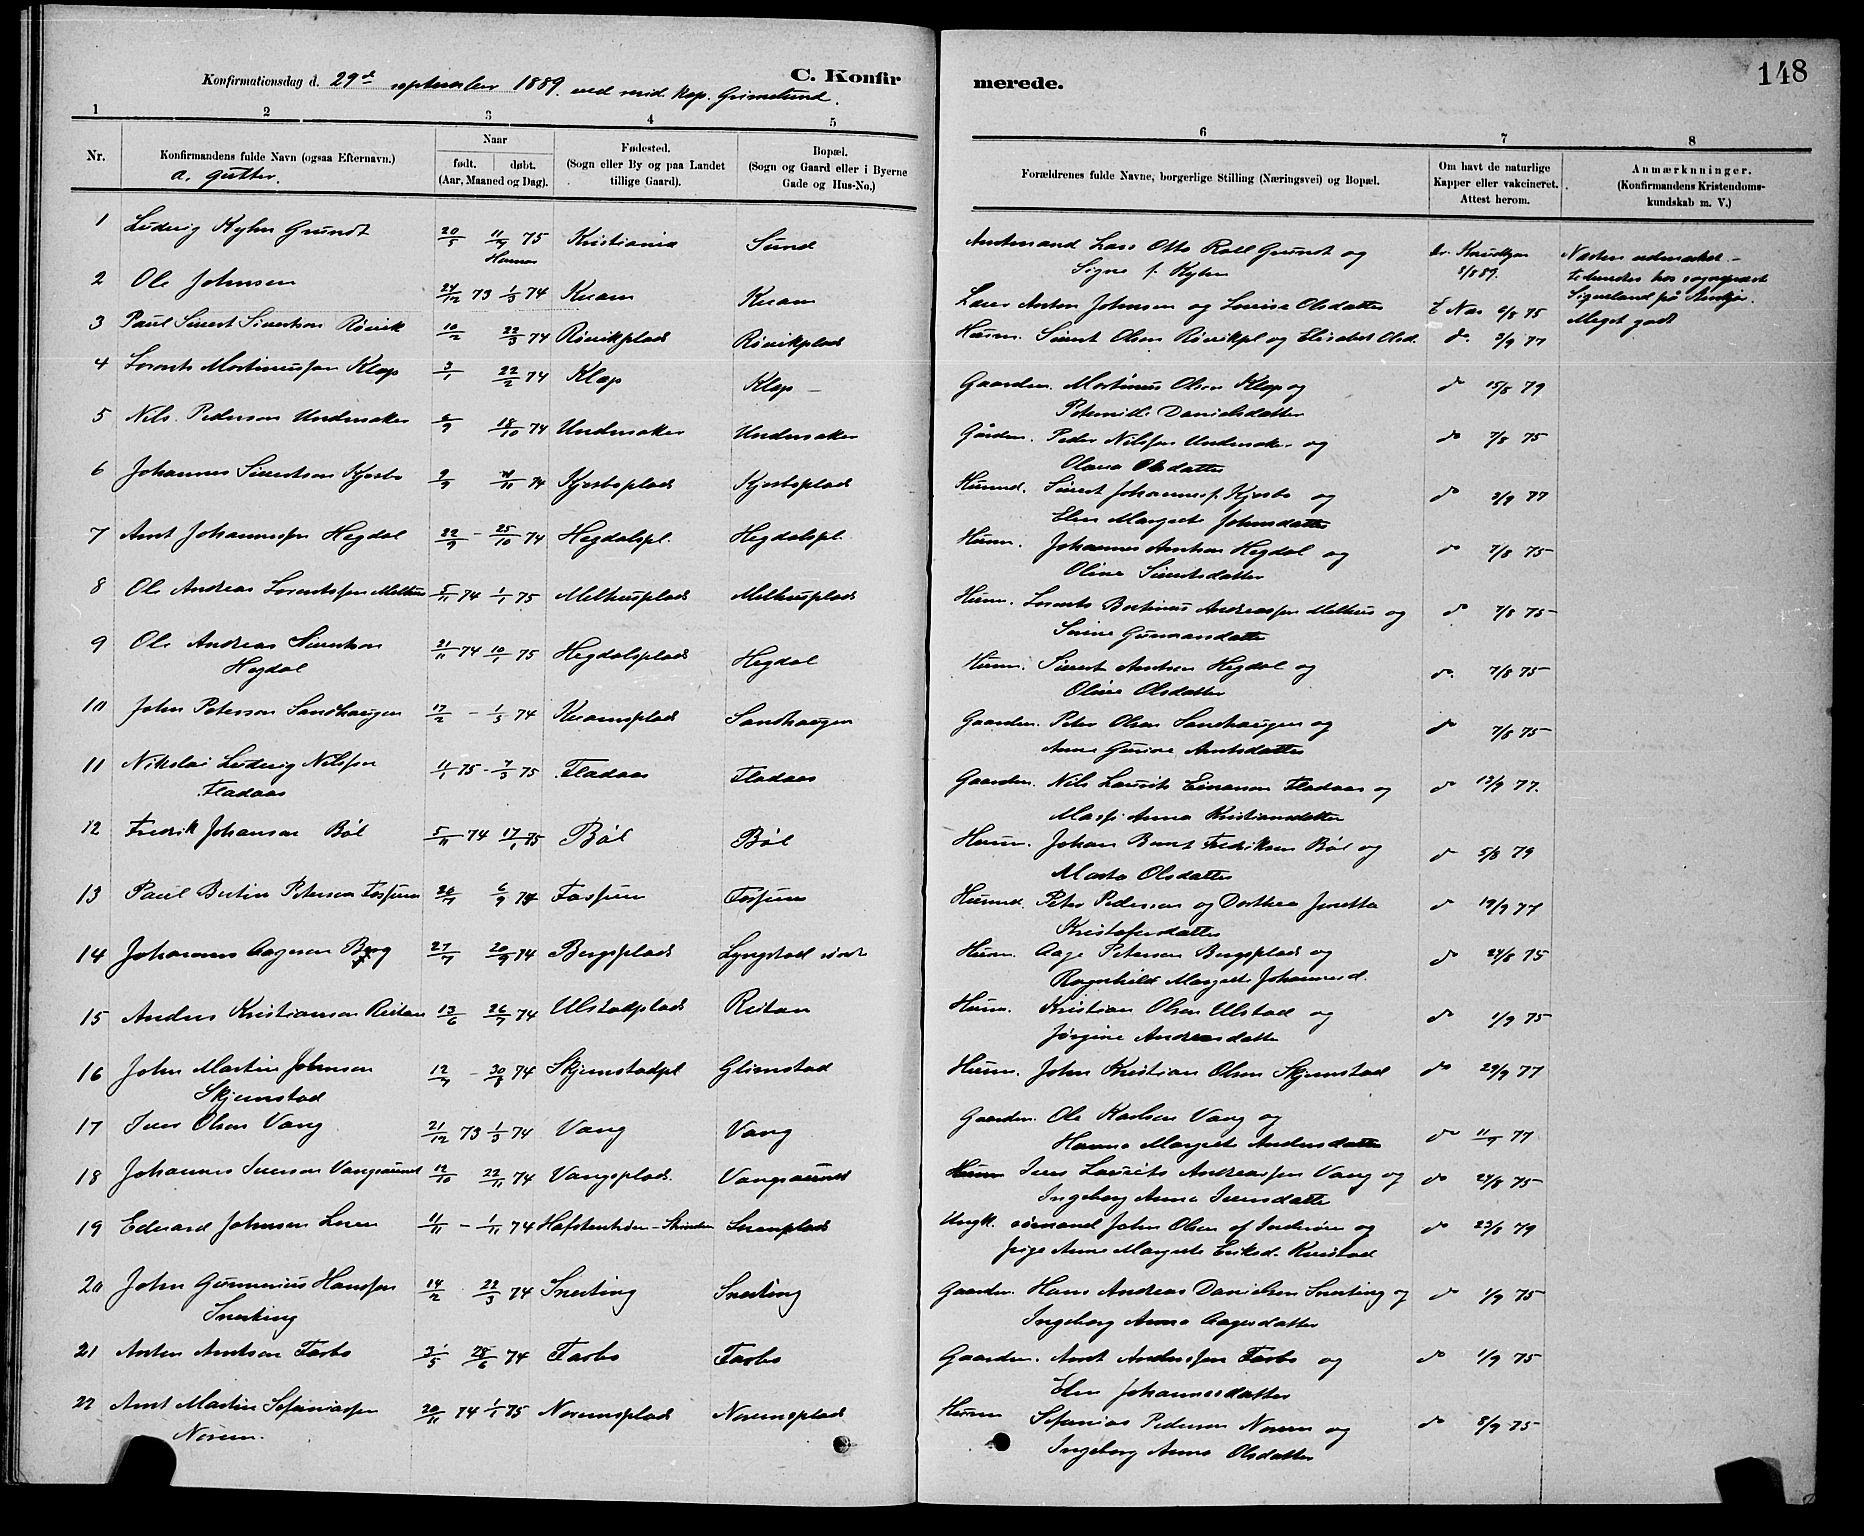 148
Konfirmationsdag d. 29de september 1889 ved resid. kap. Grimelund.
C. Konfirmerede.
1 2 3 4 5 6 7 8
Nr.
Konfirmandens fulde Navn (ogsaa Efternavn.)
a. gutter.
Naar
født. døbt.
(Aar, Maaned og Dag).
Fødested.
(Sogn eller By og paa Landet
tillige Gaard).
Bopæl.
(Sogn og Gaard eller i Byerne
Gade og Hus-No.)
Forældrenes fulde Navne, borgerlige Stilling (Næringsvei) og Bopæl.
Om havt de naturlige
Kapper eller vakcineret.
Attest herom.
Anmærknninger.
(Konfirmandens Kristendoms-
kundskab m. V.)
1 Ludvig Kyhn Grundt 20/5 11/9 75 Kristiania Sund Lars Otto Roll Grundt og
Signe f. Kyhn
2 Ole Johnsen 24/12 73 1/3 74 Kvam Kvam Lærer Anton Johnsen og Lovise Olsdatter 6/8 75 Meget godt
3 Paul Sivert Sivertsen Røvik 10/2 22/3 74 Røvikplads Røvikplads Husm. Sivert Olsen Røvikpl og Elisabet Olsd. do 3/9 77
4 Lorents Mortinussen Klæp 3/1 22/2 74 Klæp Klæp Gaardm. Mortinus Olsen Klæp og
Peternille Danielsdatter do 15/8 79
5 Nils Pedersen Undersaker 6/9 18/10 74 Undersaker Undersaker Gårdm. Peder Nilssen Undersaker og
Olava Olsdatter do 7/8 75
6 Johannes Sivertsen Kjesbo 9/9 /11 74 Kjesboplads Kjesboplads Husmd. Sivert Johannesf. Kjesbo og
Elen Margrete Johnsdatter do 3/9 77
7 Arnt Johannessen Hegdal 22/9 - 25/10 74 Hegdalspl. Hegdalspl. Husm. Johannes Arntsen Hegdal og
Oline Sivertsdatter do 7/8 75
8 Ole Andreas Lorentssen Melhus 5/11 74 1/1 75 Melhusplads Melhusplads Husm. Lorents Bertinus Andreassen Melhus og
Serine Gunnarsdatter do 7/8 75
9 Ole Andreas Sivertsen
Hegdal 21/11 74 10/1 75 Hegdalsplads Hegdal Husm. Sivert Arntsen Hegdal og
Oline Olsdatter do. 7/8 75
10 John Petersen Sandhaugen 17/2 - 1/3 74 Kvamsplads Sandhaugen Gaardm. Peter Olsen Sandhaugen og
Anne Gurine Arntsdatter do 7/8 75
11 Nikolai Ludvig Nilssen
Fladaas 11/1 75 - 7/3 75 Fladaas Fladaas Gaardm. Nils Laurits Einarsen Fladaas og
Anna Kristiansdatter do 12/9 77.
12 Fredrik Johansen Bøl 5/11 74 17/1 75 Bøl Bøl Husm. Johan Bernt Fredriksen Bøl og
Marta Olsdatter do 5/8 79
13 Paul Bertin Petersen Fossum 26/7 6/9 74 Fossum Fossum Husmd. Peter Pedersen og Dorthea Jonetta
Kristofersdatter do 19/9 77
14 Johannes Aagesen Berg 27/7 20/9 74 Bergsplads Lyngstad Husm. Aage Petersen Bergsplads og
Ragnhild Margrete Johannesd. do 24/8 75
15 Anders Kristiansen Reitan 13/6 26/7 74 Ulstadplads Reitan Husm. Kristian Olsen Ulstad og
Jørgine Andreasdatter do 1/9 75
16 John Martin Johnsen
Skjemstad 12/7 - 30/8 74 Skjemstadpl Glimstad Husm. John Kristian Olsen Skjemstad do 29/9 77
17 Iver Olsen Vang 21/12 73 1/3 74 Vang Vang Gaardm. Ole Karlsen Vang og
Hanna Margrete Andersdatter do 11/9 77
18 Johannes Iversen Vangsaunet 12/10 22/11 74 Vangsplads. Vangsaunet Husm Iver Laurits Andreassen Vang og
Ingeborg Anna Iversdatter do 24/8 75
19 Edvard Johnsen 11/11 74 Ungk. sømand John Olsen af Inderøen og
pige Anne Margrete Eriksd. Kvistad do 23/8 79
20 John Gunnerius Hanssen
Snerting 14/2 22/3 74 Snerting Snerting Gaardm. Hans Andreas Danielsen Snerting og
Ingeborg Anna Aagesdatter do 1/9 75
21 Anton Arntsen Farbo 31/5 28/6 74 Farbo Farbo Gaardm. Arnt Anderssen Farbo og
Elen Johannesdatter do 1/9 75
22 Arnt Martin Sefaniassen
Norem. 20/11 74 1/1 75 Noremsplads Noremsplads Husm Sefanias Pedersen Norem og
Ingeborg Anna Olsdatter do 8/9 75